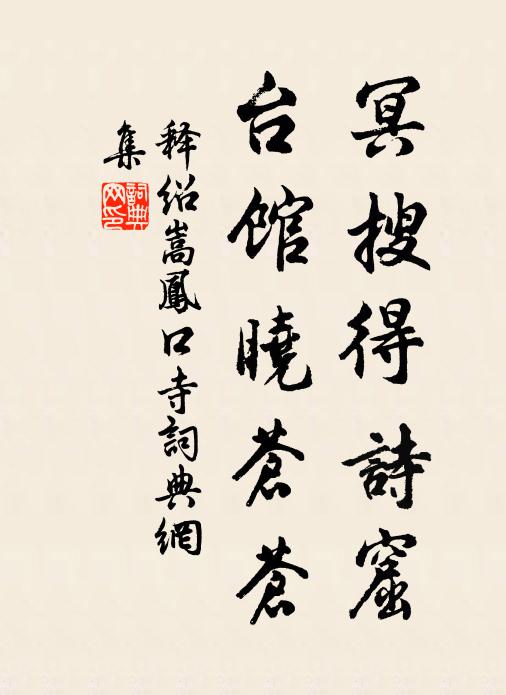 冥搜得詩窟
台馆曉蒼蒼
释紹嵩鳳口寺詞典網
集
詞典网印